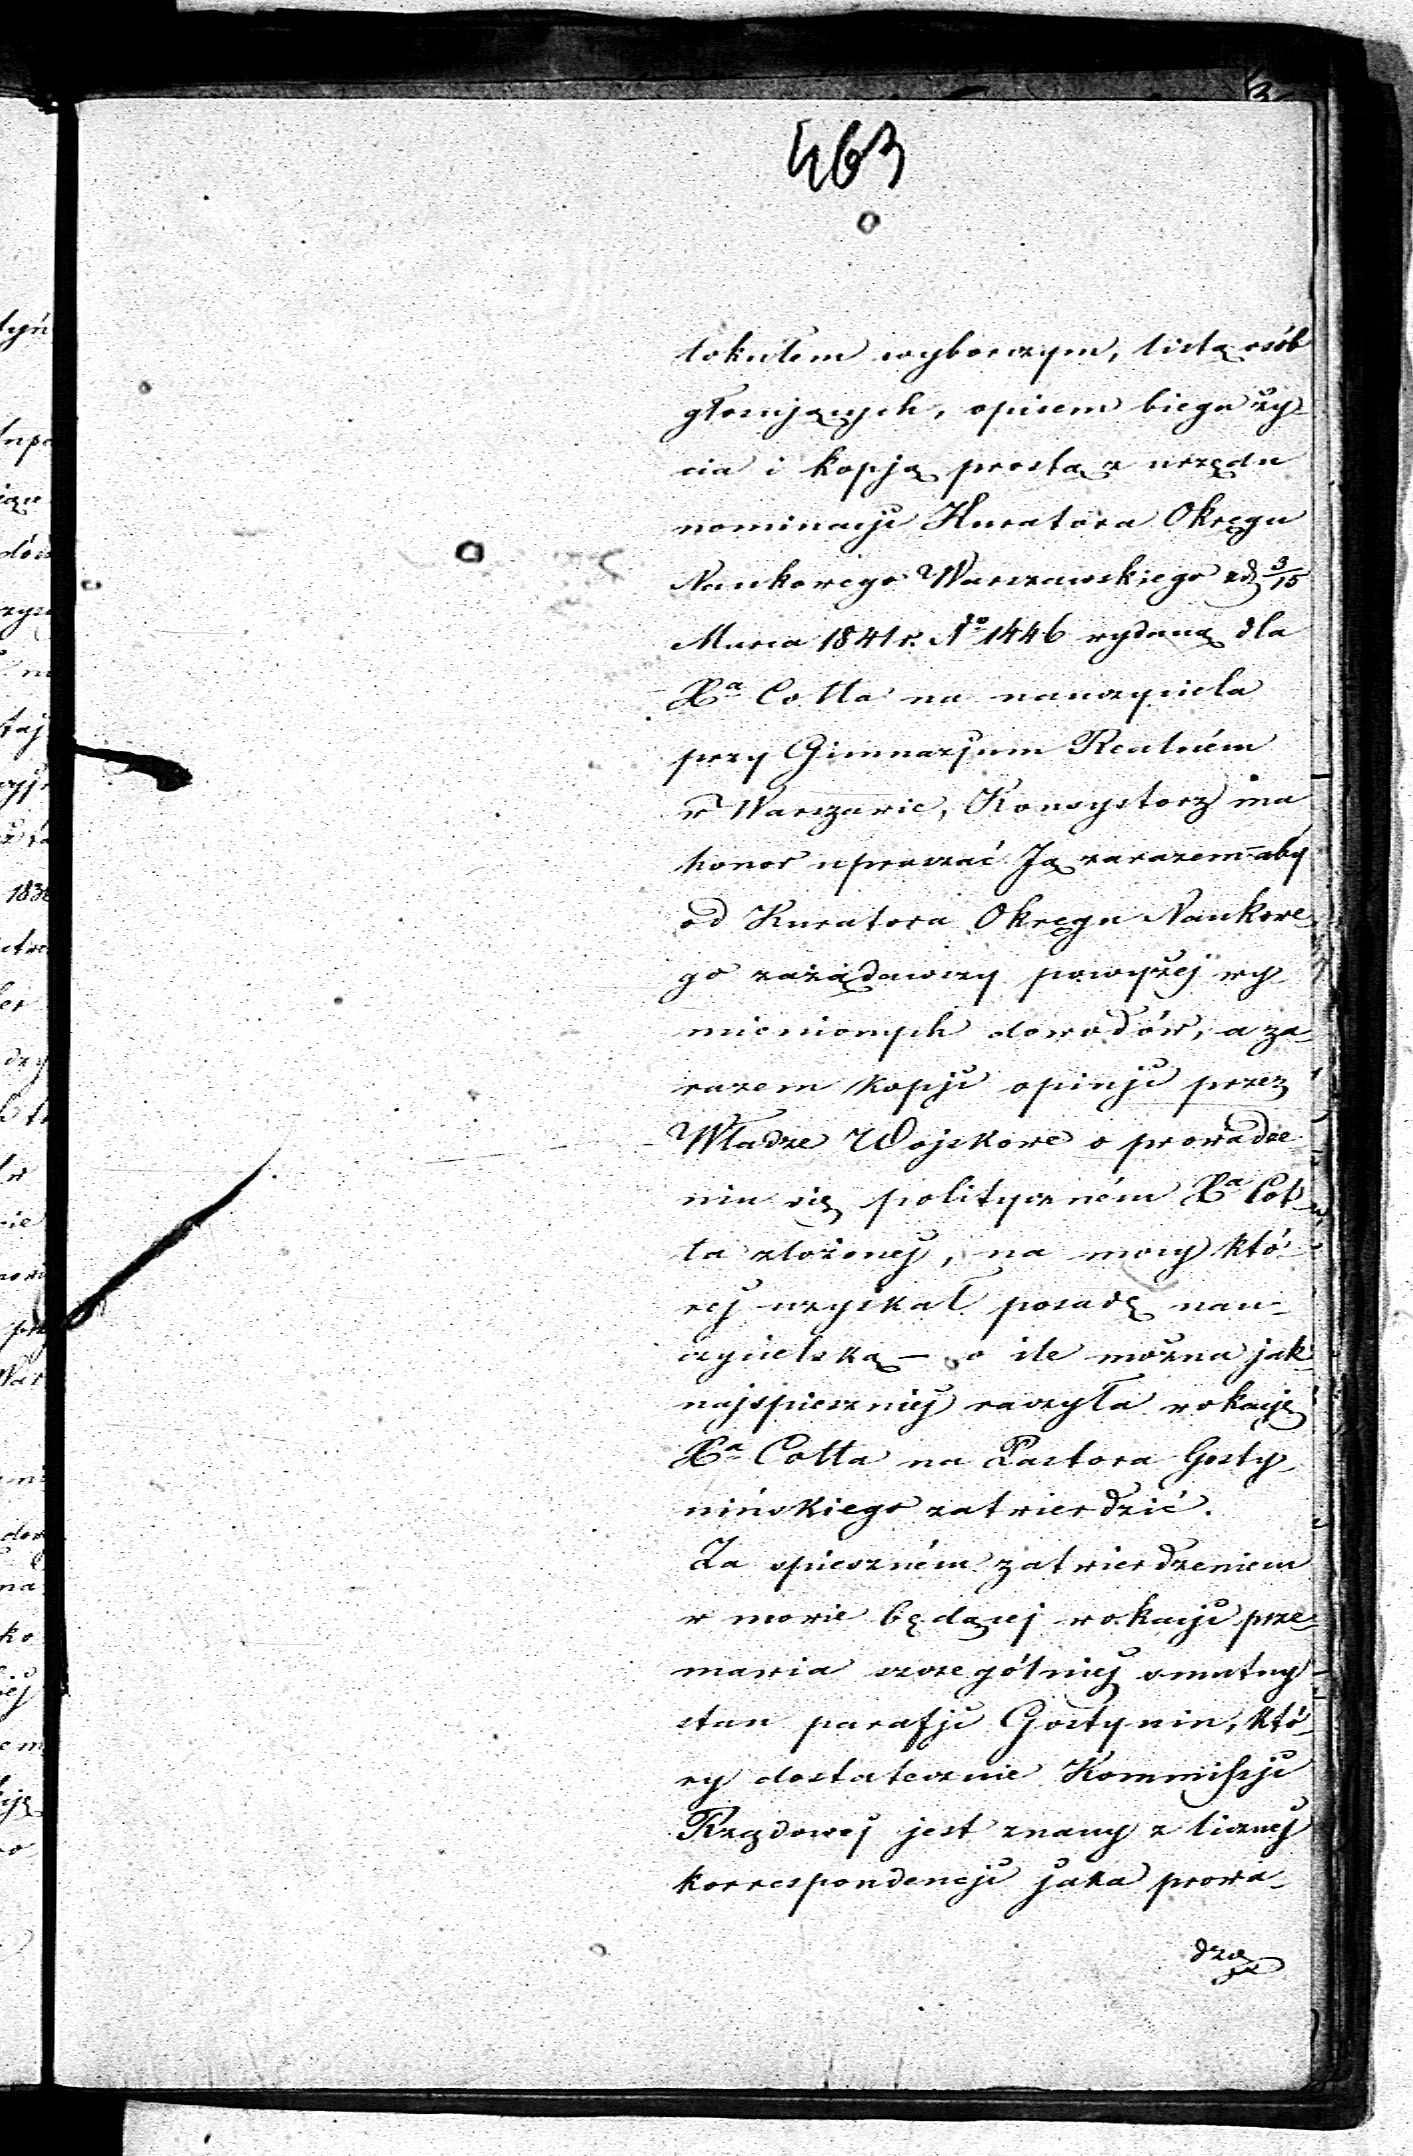 463
tokułem wyborczym, listą osób
głosujących, opisem biegu ży-
cia i kopją prostą z urzędu
nominacji Kuratora Okręgu
Naukowego Warszawskiego z d. 3/15
Marca 1841 r. No 1446 wydaną dla
Xa Cotta na nauczyciela
przy Gimnazjum Realném
w Warszawie, Konsystorz ma
honor upraszać Ją zarazem aby
od Kuratora Okręgu Naukowe
go zażądawszy powyżej wy
mienionych dowodów, a za-
razem kopji opinji przez
Władze Wojskowe o prowadze
niu się polityczném Xa Cot-
ta złożonej, na mocy któ
rej uzyskał posadę nau-
czycielską – o ile można jak
najspieszniej raczyła wokację
Xa Cotta na Pastora Gosty-
nińskiego zatwierdzić.
Za spieszném zatwierdzeniem
w mowie będącej wokacji prze-
mawia szczególniej smutny
stan parafji Gostynin, któ-
ry dostatecznie Kommissji
Rządowej jest znany z licznej
korrespondencji jaka prowa-
dzo